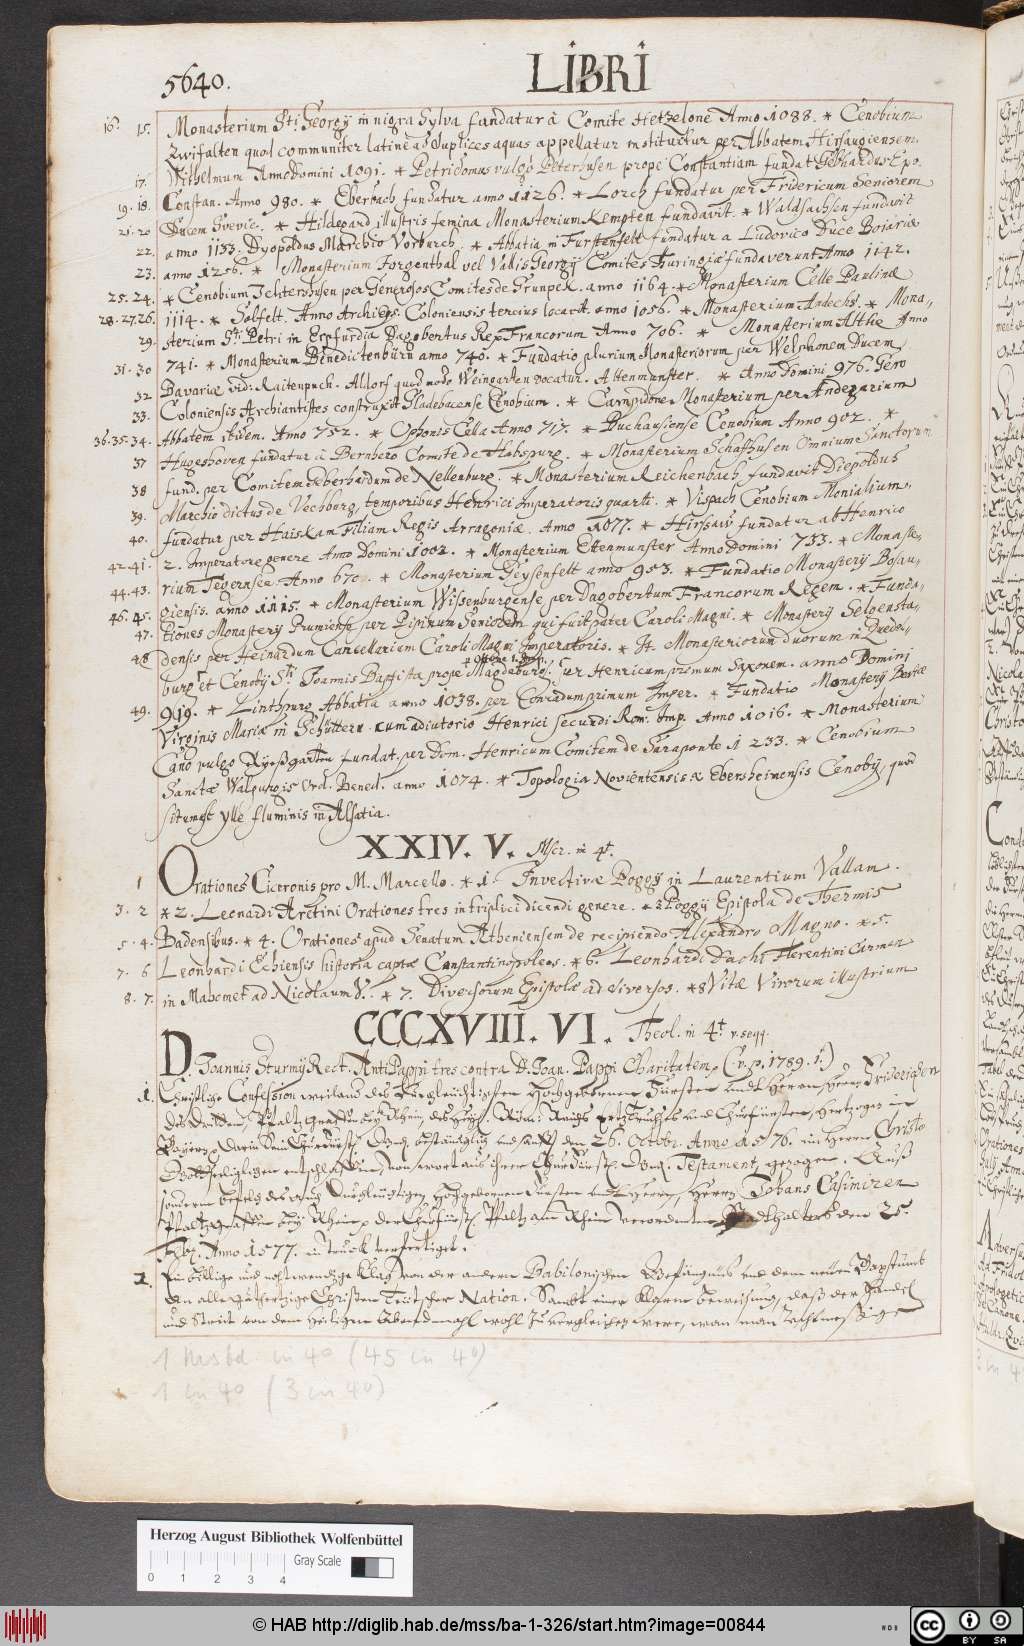 5640.
LIBRI
16. 15. Monasterium Sti. Georgy in nigra Sylva fundatur à Comite Hetzelone Anno 1088. * Cenobium
Zwifalten quod communiter latinè ad duplices aquas appellatur instituitur per Abbatem Hirsaugiensem
17. Wilhelmum Anno Domini 1091. * Petridomus vulgò Petershusen prope Constantiam fundat Gebhardus Epo.
19. 18. Constan. Anno 980. * Eberbach fundatur anno 1126. * Lorch fundatur per Fridericum Seniorem
21. 20 Ducem Svevie. * Hildegard illustris femina Monasterium Kempten fundavit. * Waldsachsen fundavit
22. anno 1133. Dyopoldus Marchio Vorburch. * Abbatia in Furstenfelt fundatur a Ludovico Duce Boiariæ
23. anno 1256. * Monasterium Forgenthal vel Vallis Georgy Comites Thuringiæ fundaverunt Anno 1142.
25. 24. * Cenobium Ichtershusen per Generosos Comites de Grunpek. anno 1164. * Monasterium Celle Paulinæ
28. 27. 26. 1114. * Salfelt. Anno Archieps. Coloniensis tercius locavit. anno 1056. * Monasterium Andechs. * Mona-
29. sterium Sti. Petri in Erpfurdia Dagobertus Rex Francorum Anno 706. * Monasterium Althe Anno
31. 30 741. * Monasterium Benedictenbürn anno 740. * Fundatio plurium Monasteriorum per Welphonem Ducem
32 Bavariæ vid: Raitenpuch. Altorf quod modo Weingarten vocatur. Altenmunster. * Anno Domini 976. Gero
33. Coloniensis Archiantistes construxit Gladebacense Cenobium. * Campidone Monasterium per Andegarium
36. 35. 34. Abbatem itidem. Anno 752. * Ophonis Cella Anno 717. * Buchaugiense Cenobium Anno 902. *
37 Hugeshoven fundatur à Bernhero Comite de Habspurg. * Monasterium Schafhusen Omnium Sanctorum
38 fund. per Comitem de Eberhardum de Nellenburg. * Monasterium Reichenbach fundavit Diepoldus
39. Marchio dictus de Vechburg, temporibus Henrici Imperatoris quarti. * Vispach Cenobium Monialium
40. fundatur per Haiskam Filiam Regis Arragoniæ. Anno 1077. * Hirssaw fundatur ab Henrico
42. 41. 2. Imperatore genere Anno Domini 1002. * Monasterium Ettenmunster Anno Domini 733. * Monaste-
44. 43. rium Tegernsee. Anno 670. * Monasterium Geysenfelt anno 953. * Fundatio Monastery Bosau-
46. 45. giensis. anno 1115. * Monasterium Wissenburgense per Dagobertum Francorum Regem. * Funda-
47. tiones Monastery Prumiense per Pipinum Seniorem qui fuit pater Caroli Magni. * Monastery Selgensta-
48 densis per Heinardum Cancellarium Caroli Magni Imperatoris. * It. Monasteriorum duorum in Quedel-
burg et Cenoby Sti. Joannis Baptista prope Magdeburg. per Henricum primum Saxonem. anno Domini
49. 919. * Linthpurg Abbatia anno 1038. per Conradum primum Imper. * Fundatio Monastery Beatæ
Virginis Mariæ in Schüttern cum adiutorio Henrici secundi Rom. Imp. Anno 1016. * Monasterium
fundat. per Dom. Henricum Comitem de Saraponte 1233. * Cenobium
Sanctæ Walpurgis Ord. Bened. anno 1074. * Topologia Novientensis & Ebersheimensis Cenoby, quod
situm est ylle fluminis in Alsatia.
XXIV. V. Mscr. in 4t.
1 Orationes Ciceronis pro M. Marcello. * 1. Invectivæ Poggy in Laurentium Vallam.
3. 2 * 2. Leonardi Aretini Orationes tres in triplici dicendi genere. * 3 Poggy Epistola de Thermis
5. 4. Badensibus. * 4. Orationes apud Senatum Atheniensem de recipiendo Alexandro Magno. * 5.
7. 6 Leonhardi Echiensis historia captæ Constantinopoleos. * 6. Leonhardi Dachi Florentini Carmen
8. 7. in Mahomet ad Nicolaum V. * 7. Diversorum Epistolæ ad diversos. * 8 Vitæ Virorum illustrium
CCCXVIII. VI. Theol. in 4t. v. seqq.
D. Joannis Sturmy Rect. AntiPappi tres contra D. Joan. Pappi Charitatem, (v. p. 1789. 1.)
1. Christliche Confession weiland des Durchleuchtigsten Hochgebornen Fürsten und Herrn Herrn Friderichen
des dritten, Pfaltzgraffen bey Rhein, des Heyl. Röm: Reichs Ertztruchses und Churfürsten, Hertzogen in
Bayern, Darin Sein Churfürstl. Gnad. beständiglich und sanft den 26. Octobr. Anno 1576. im Herrn Christo
Gottseeligligen entschlaffen, von wort aus ihrer Churfürstl. Gnad. Testament gezogen. Auß
sonderm befelch des auch Durchleuchtigen, Hochgebornen Fürsten und Herrn, Herrn Johans Casimiren
Pfaltzgraffen bey Rhein, der Churfürstl. Pfaltz am Rhein verordneten Stadthalters den 25.
Anno 1577. in truck verfertiget.
2. Ein billige und nothwendige Klag von der andern Babilonischen Gefängnüs und dem neuen Bapstumb
An alle gutherzige Christen Teutscher Nation. Sambt einer klaren beweisung, daß der Handel
und Streit von dem Heiligen Abendmahl wohl zu vergleichen were, wan man
1 Hasbd. in 4° (45 in 4°)
1 in 4° (3 in 4°)
Herzog August Bibliothek Wolfenbüttel
0 1 2 3 4 Gray Scale
© HAB http://diglib.hab.de/mss/ba-1-326/start.htm?image=00844
WDB
cc BY SA